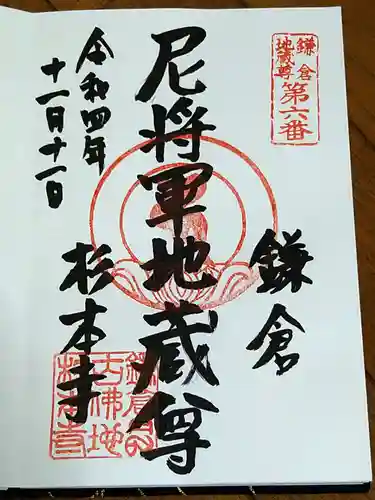 鎌倉
地蔵尊
第六番
鎌倉
尼将軍地蔵尊
杉本寺
令和四年
十一月十一日
杉本寺